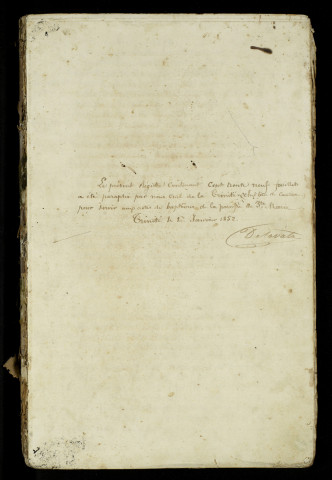 Le présent Registre contenant Cent trente neuf feuillets
a été paraphé par nous Curé de la Trinité
pour servir aux actes de baptêmes de la paroisse de
Trinité le 2 Janvier 1852